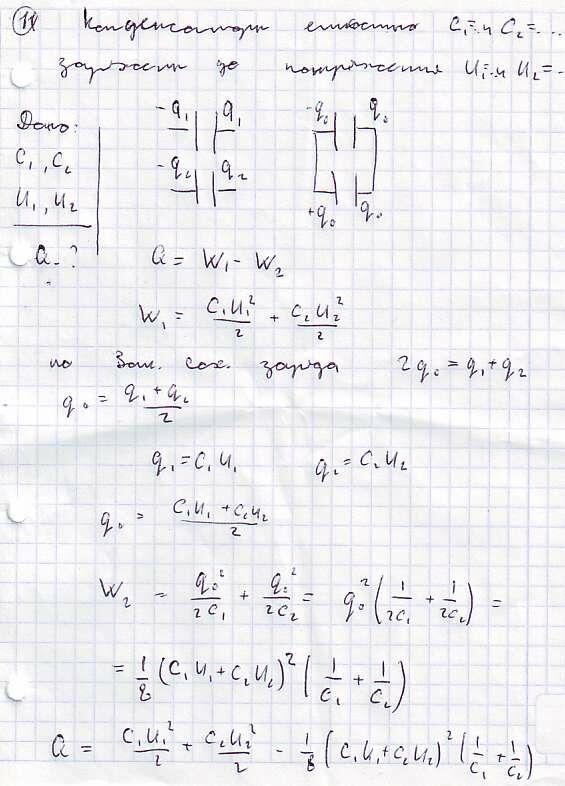 11 Конденсаторы емкостью C₁=.. и C₂=...
заряжены до напряжения U₁=.. и U₂=..
Дано:
C₁, C₂
U₁, U₂
Q - ?
-q₁ q₁ -q₀ q₀
-q₂ q₂
+q₀ q₀
Q = W₁ - W₂
W₁ = C₁U₁²/2 + C₂U₂²/2
по Зак. сох. заряда 2q₀ = q₁ + q₂
q₀ = (q₁ + q₂)/2
q₁ = C₁U₁ q₂ = C₂U₂
q₀ = (C₁U₁ + C₂U₂)/2
W₂ = q₀²/2C₁ + q₀²/2C₂ = q₀²(1/2C₁ + 1/2C₂) =
= 1/8 (C₁U₁ + C₂U₂)² (1/C₁ + 1/C₂)
Q = C₁U₁²/2 + C₂U₂²/2 - 1/8 (C₁U₁ + C₂U₂)² (1/C₁ + 1/C₂)